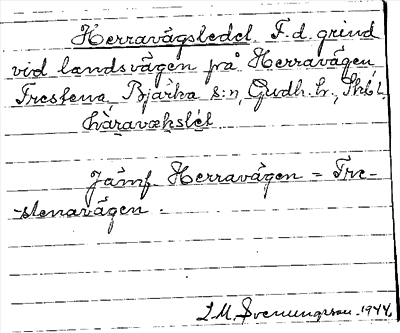 Herravägsledet. F.d. grind
vid landsvägen på Herravägen
Trestena, Bjärka s:n, Gudh. hr.,
Jämf. Herravägen = Tre-
stenavägen.
S.M. Svenungsson. 1944.